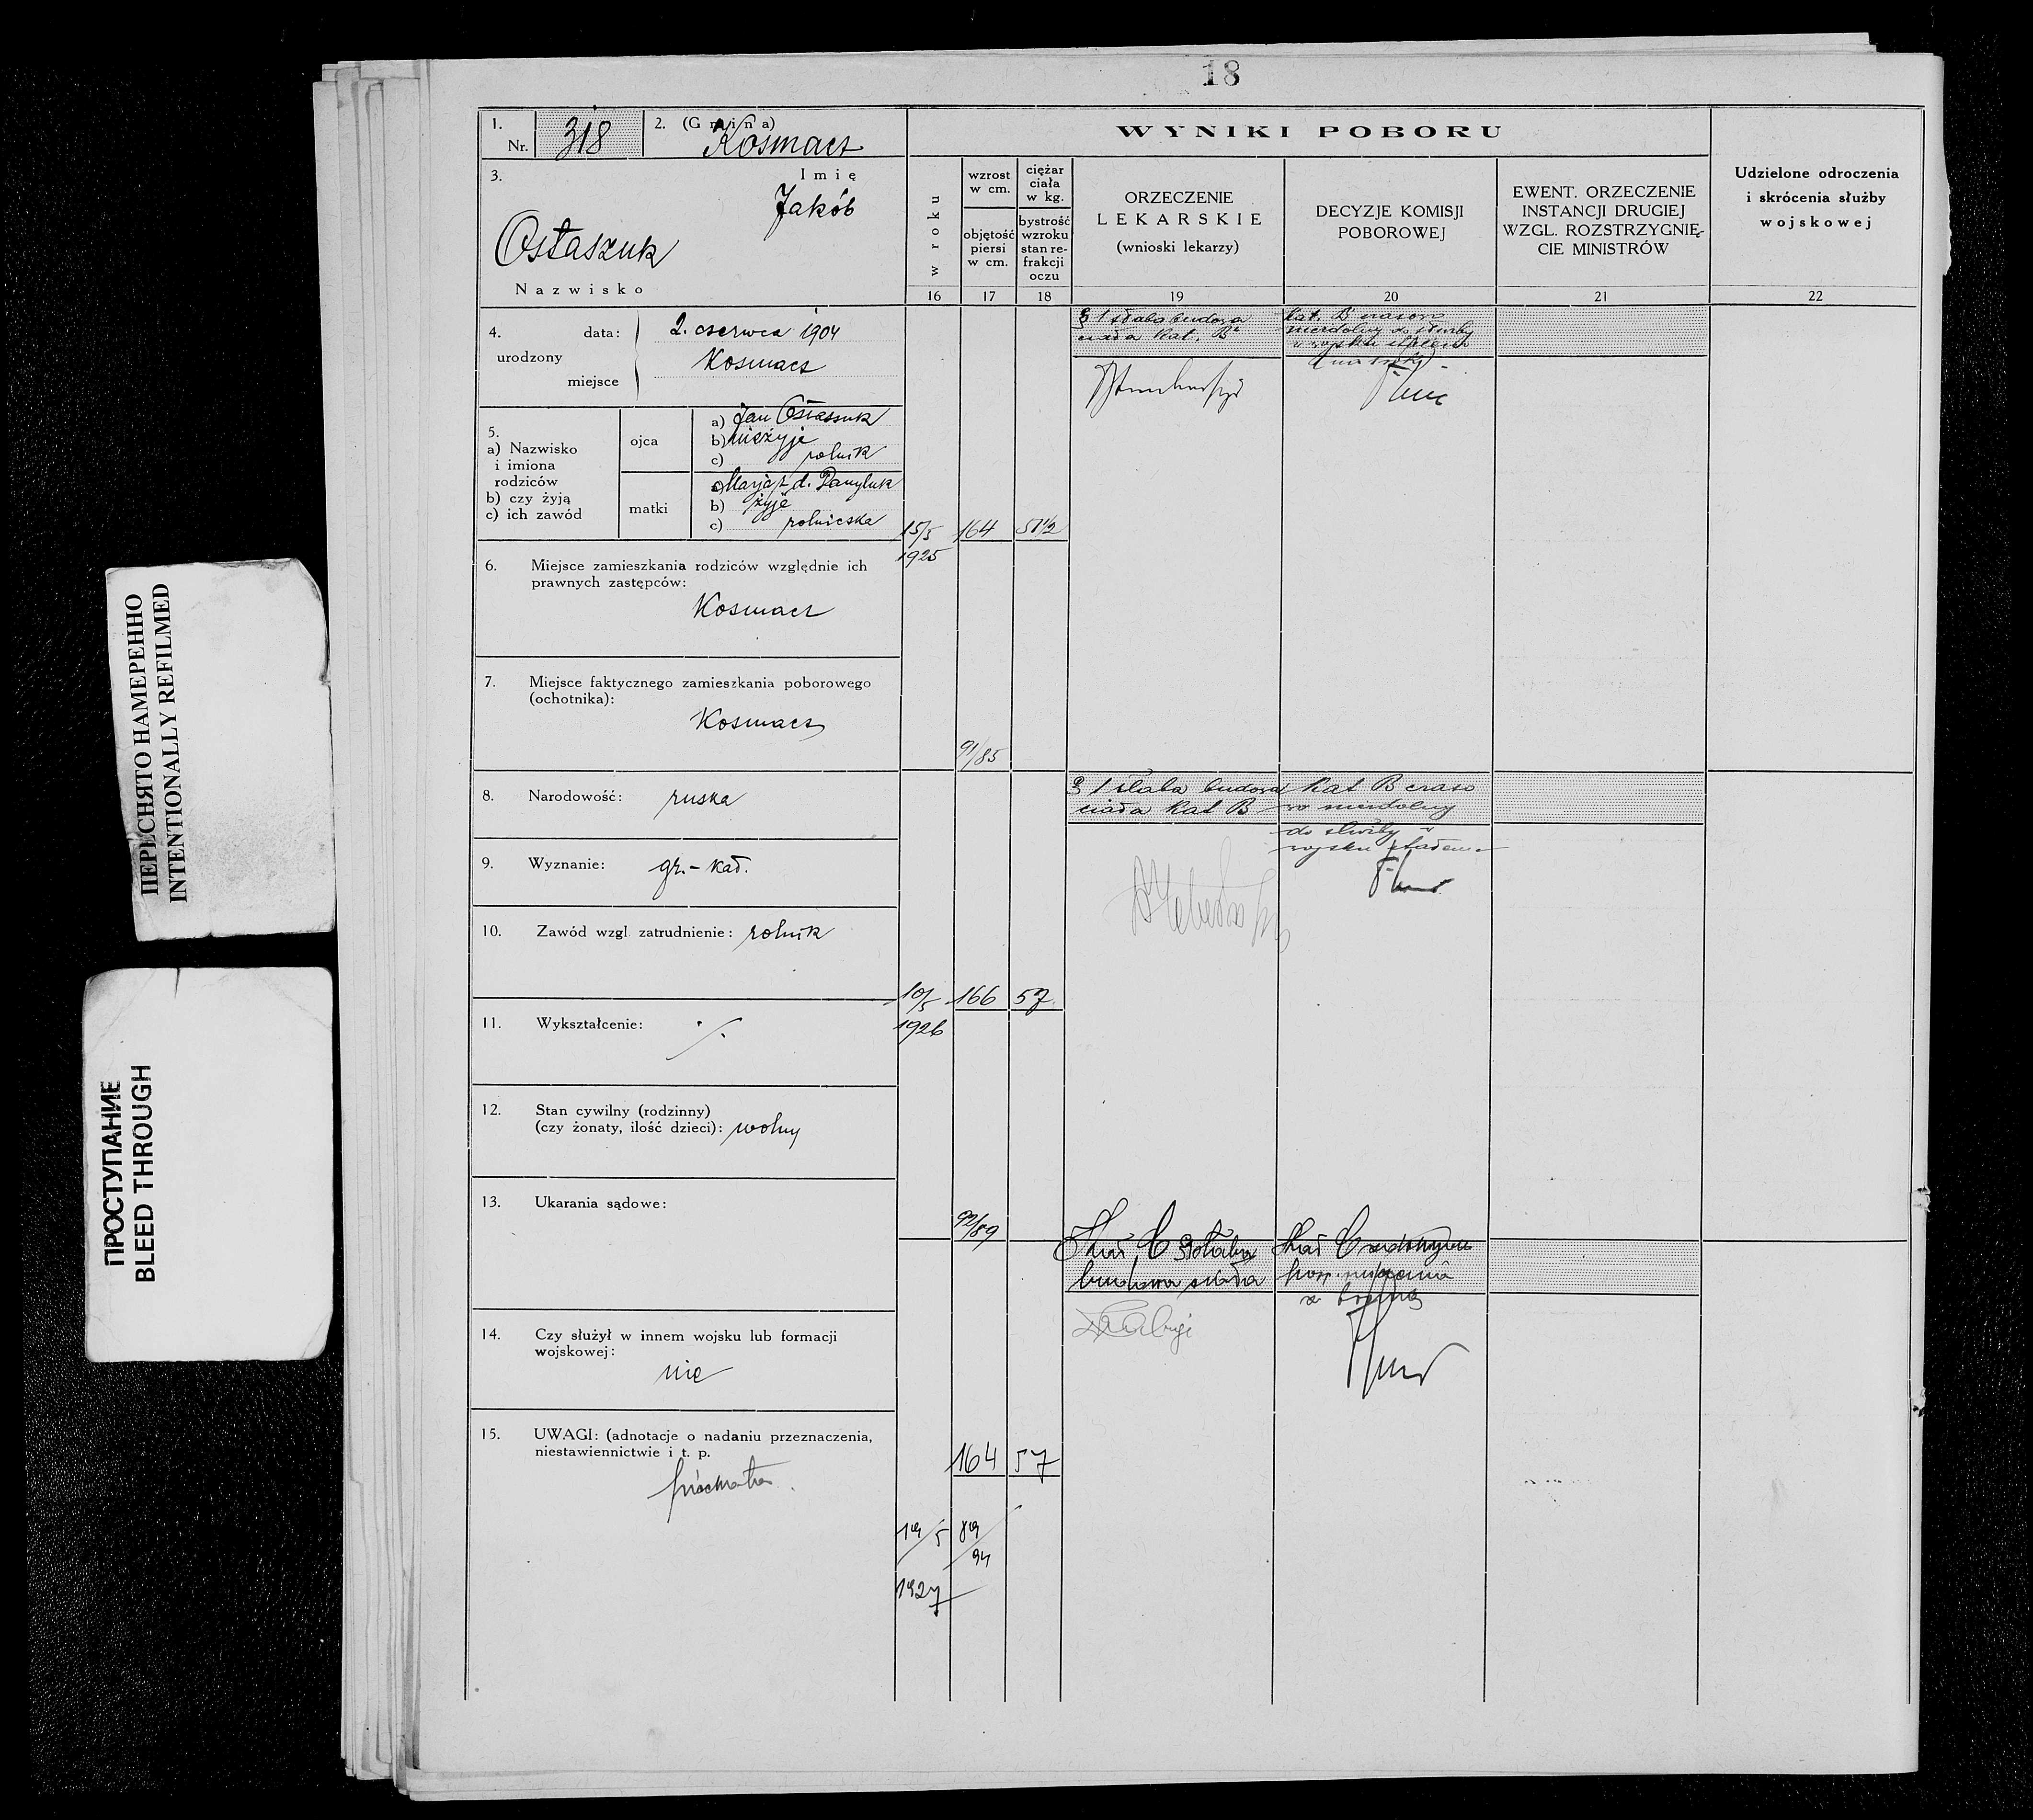 18
1.
Nr. 318
2. (Gmina)
Kosmacz
3.
Imię
Jakób
Ostaszuk
Nazwisko
WYNIKI POBORU
w roku
wzrost
w cm.
objętość
piersi
w cm.
ciężar
ciała
w kg.
bystrość
wzroku
stan re-
frakcji
oczu
ORZECZENIE
LEKARSKIE
(wnioski lekarzy)
DECYZJE KOMISJI
POBOROWEJ
EWENT. ORZECZENIE
INSTANCJI DRUGIEJ
WZGL. ROZSTRZYGNIĘ-
CIE MINISTRÓW
Udzielone odroczenia
i skrócenia służby
wojskowej
16 17 18 19 20 21 22
4. urodzony
data: 2. czerwca 1904
miejsce Kosmacz
5.
a) Nazwisko
i imiona
rodziców
b) czy żyją
c) ich zawód
ojca
a) Jan Ostaszuk
b) nieżyje
c) rolnik
matki
a) Marja z d. Danyluk
b) żyje
c) rolniczka
6. Miejsce zamieszkania rodziców względnie ich
prawnych zastępców:
Kosmacz
7. Miejsce faktycznego zamieszkania poborowego
(ochotnika):
Kosmacz
8. Narodowość: ruska
9. Wyznanie: gr.-kat.
10. Zawód wzgl. zatrudnienie: rolnik
11. Wykształcenie: ./.
12. Stan cywilny (rodzinny)
(czy żonaty, ilość dzieci): wolny
13. Ukarania sądowe:
14. Czy służył w innem wojsku lub formacji
wojskowej:
nie
15. UWAGI: (adnotacje o nadaniu przeznaczenia,
niestawiennictwie i t. p.
piechota
15/5 164 51 1/2
1925
91/85
§ 1 słaba budowa
ciała kat. B
kat. B czasowo
niezdolny do służby
w wojsku stałem
10/5 166 57
1926
92/89
§ 1 słaba budowa
ciała kat B
kat B czaso
wo niezdolny
do służby w
wojsku stałem
164 57
19/5 89/94
1927
Kat C słaba
budowa ciała
Kat C zdolny do
posp. ruszenia
z bronią
ПЕРЕСНЯТО НАМЕРЕННО
INTENTIONALLY REFILMED
ПРОСТУПАНИЕ
BLEED THROUGH